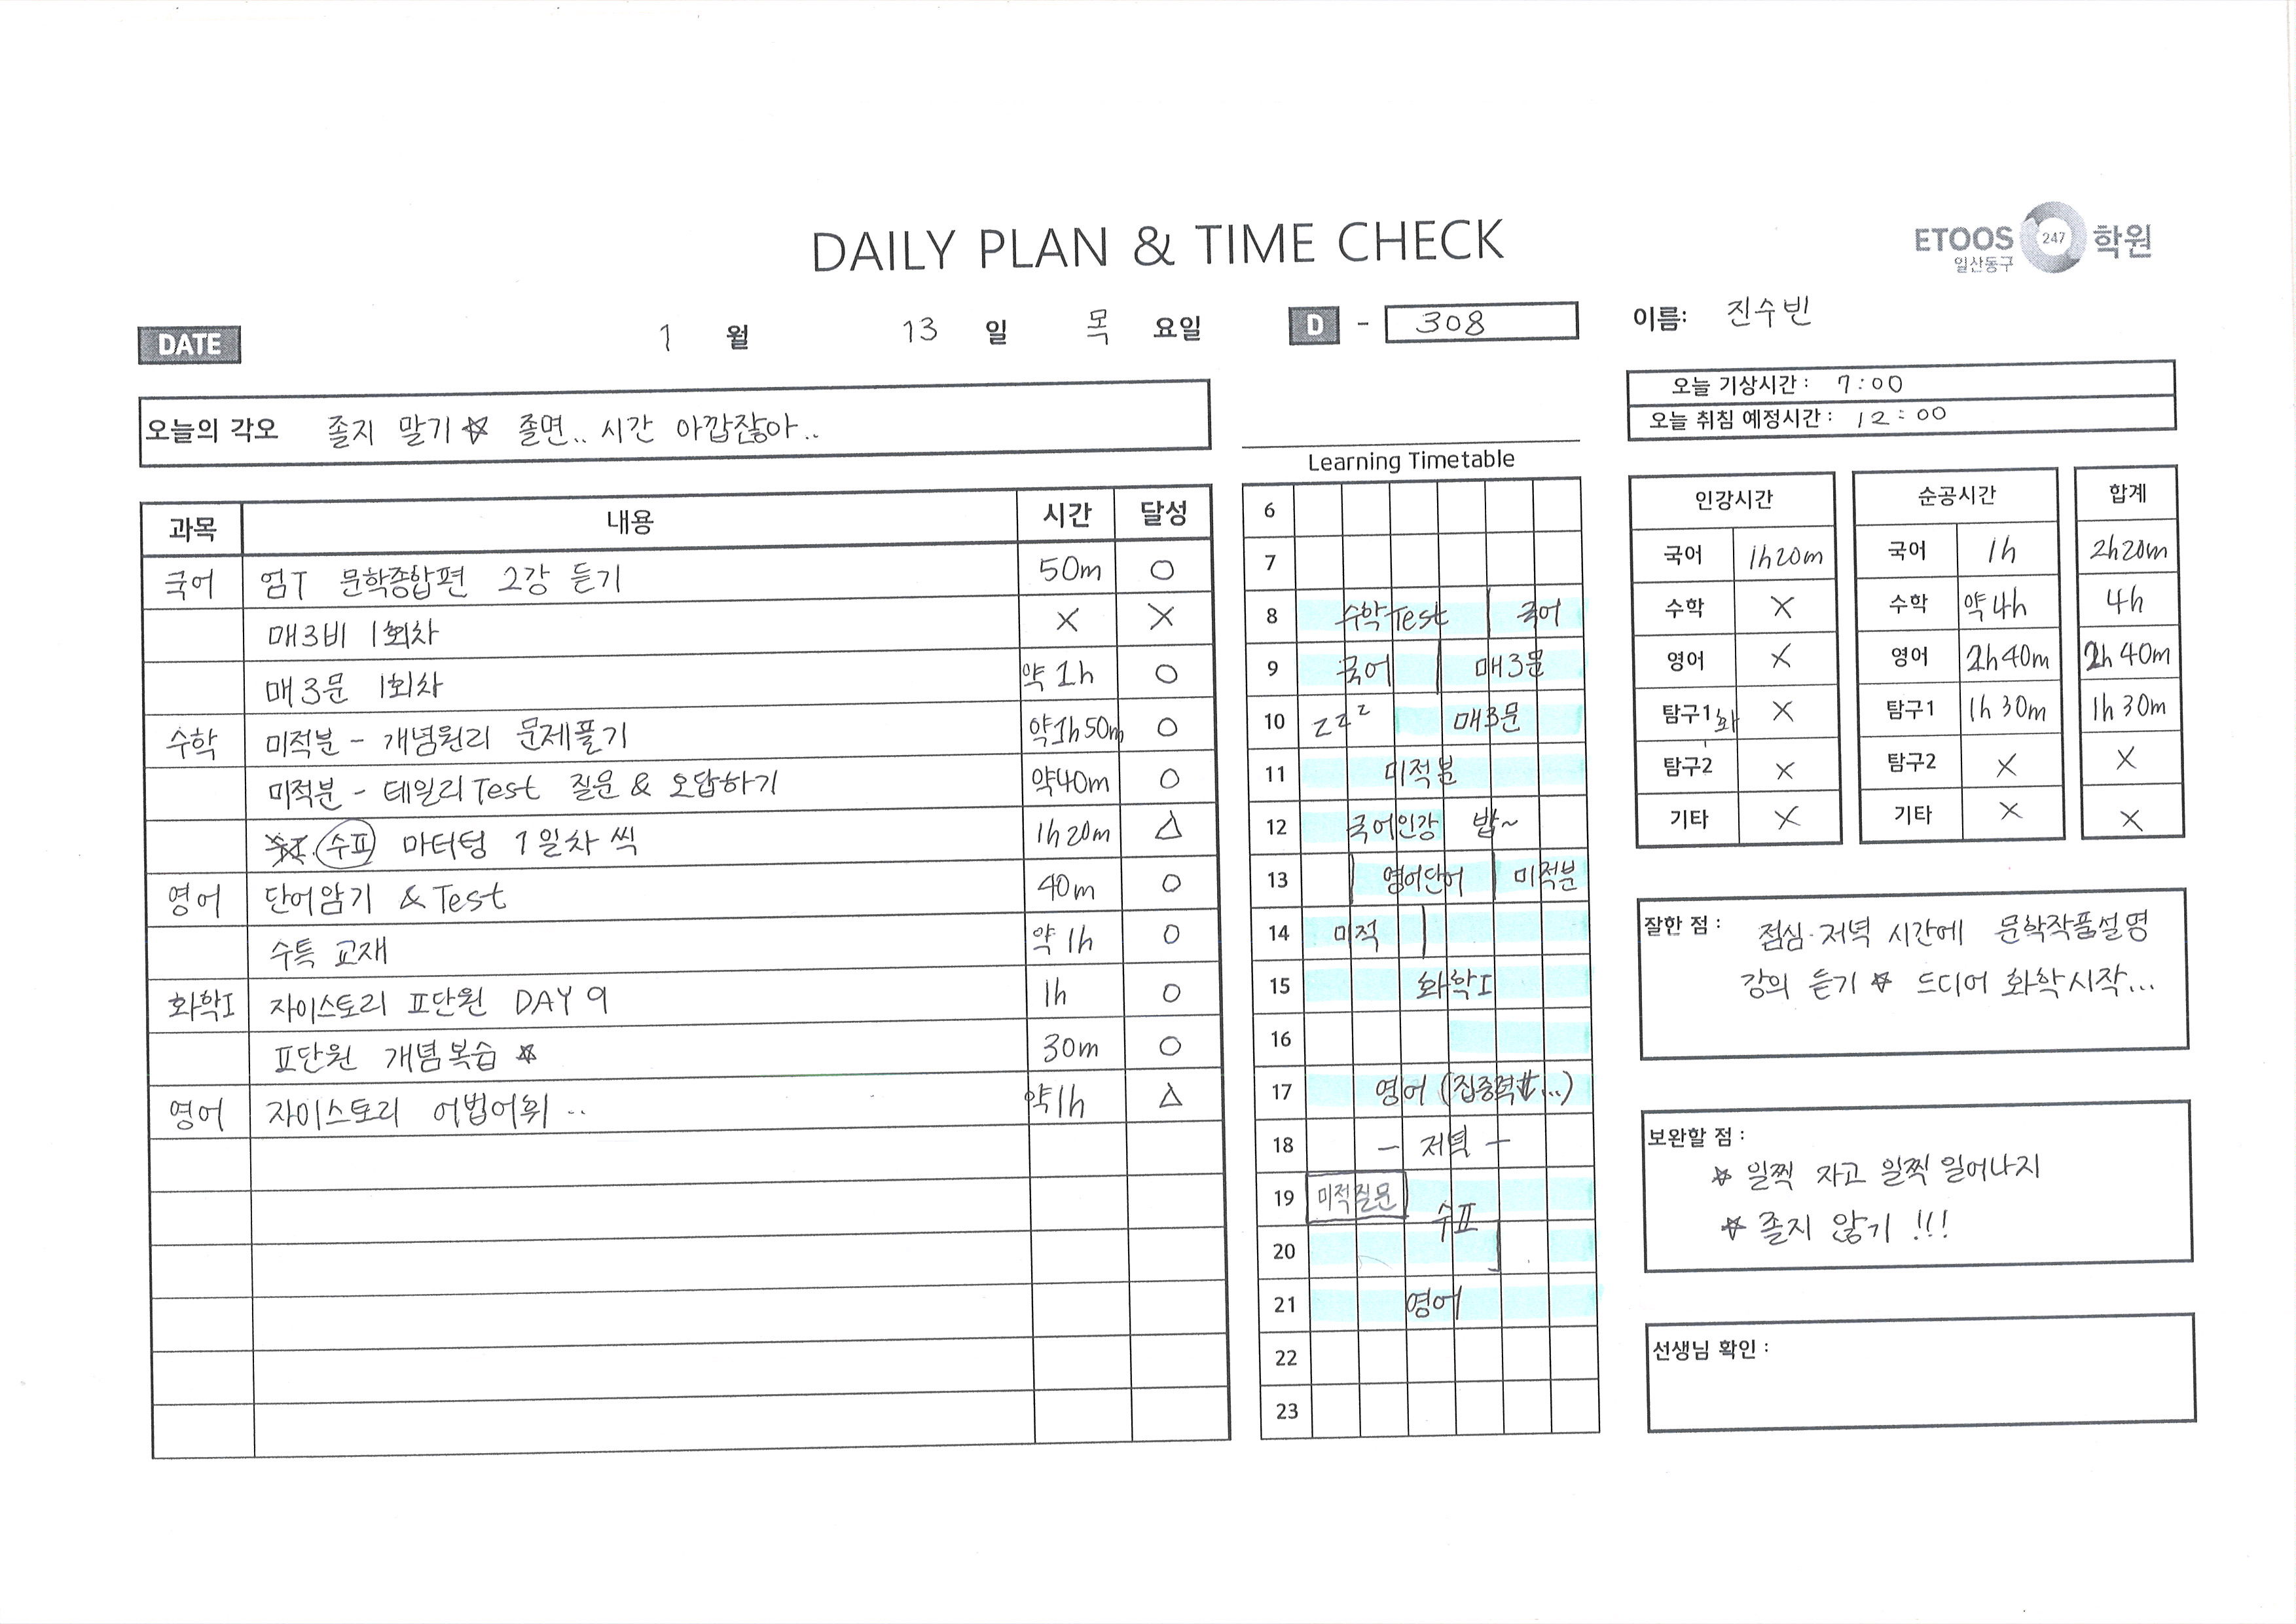 DAILY PLAN & TIME CHECK
ETOOS 247 학원
일산동구
DATE 1 월 13 일 목 요일 D - 308
이름: 진수빈
오늘의 각오 졸지 말기 ☆ 졸면.. 시간 아깝잖아..
오늘 기상시간 : 7:00
오늘 취침 예정시간 : 12:00
과목 내용 시간 달성
국어 엄T 문학종합편 2강 듣기 50m O
매3비 1회차 X X
매3문 1회차 약 1h O
수학 미적분 - 개념원리 문제풀기 약1h 50m O
미적분 - 테일리 Test 질문 & 오답하기 약40m O
수Ⅱ 마더텅 1일차 씩 1h 20m △
영어 단어암기 & Test 40m O
수특 교재 약 1h O
화학I 자이스토리 Ⅱ단원 DAY 9 1h O
Ⅱ단원 개념복습 ☆ 30m O
영어 자이스토리 어법어휘 .. 약1h △
Learning Timetable
6
7
8 수학Test 국어
9 국어 매3문
10 zzz 매3문
11 미적분
12 국어인강 밥~
13 영어단어 미적분
14 미적
15 화학I
16
17 영어 (집중력...)
18 - 저녁 -
19 미적질문 수Ⅱ
20
21 영어
22
23
인강시간
국어 1h20m
수학 X
영어 X
탐구1 화 X
탐구2 X
기타 X
순공시간
국어 1h
수학 약4h
영어 2h40m
탐구1 1h 30m
탐구2 X
기타 X
합계
2h20m
4h
2h 40m
1h 30m
X
X
잘한 점 : 점심·저녁 시간에 문학작품설명
강의 듣기 ☆ 드디어 화학시작...
보완할 점 :
☆ 일찍 자고 일찍 일어나지
☆ 졸지 않기 !!!
선생님 확인 :